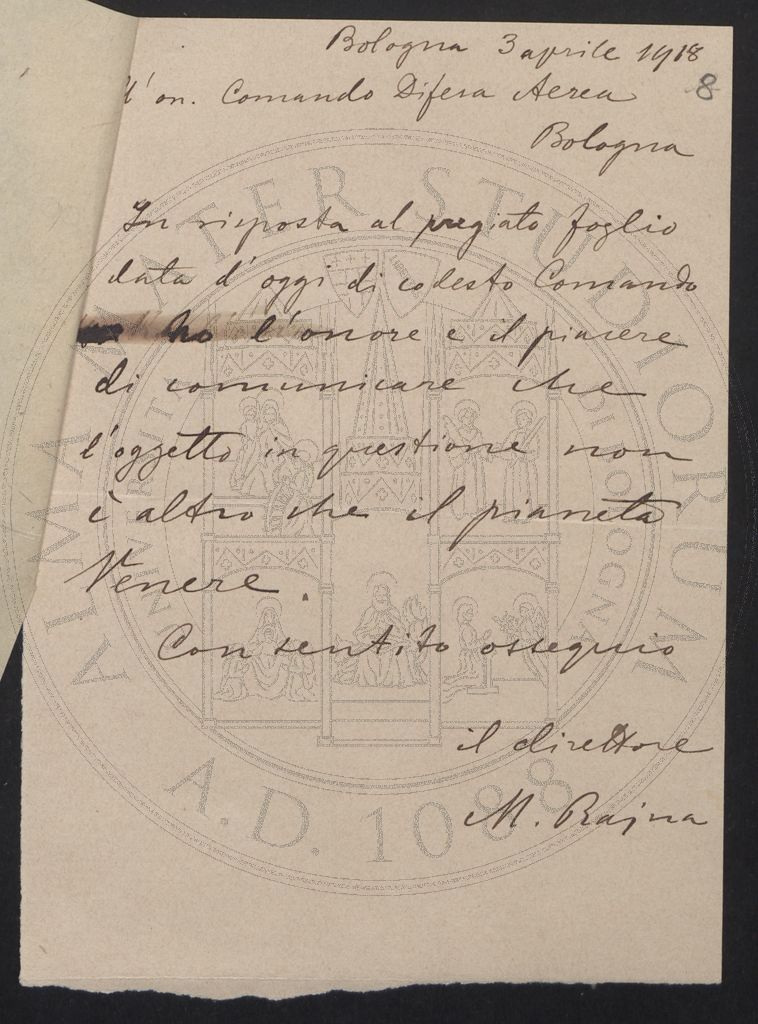 Bologna 3 aprile 1918
8
All'on. Comando Difesa Aerea
Bologna
In risposta al pregiato foglio
data d'oggi di codesto Comando
ho l'onore e il piacere
di comunicare che
l'oggetto in questione non
è altro che il pianeta
Venere.
Con sentito ossequio
il direttore
M. Rajna
ALMA MATER STUDIORUM
A.D. 1088